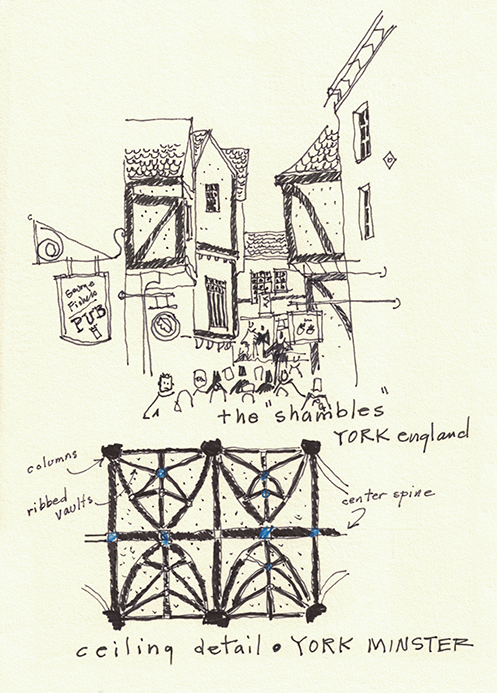 George
PUB
the "shambles"
YORK england
columns
ribbed
vaults
center spine
ceiling detail • YORK MINSTER